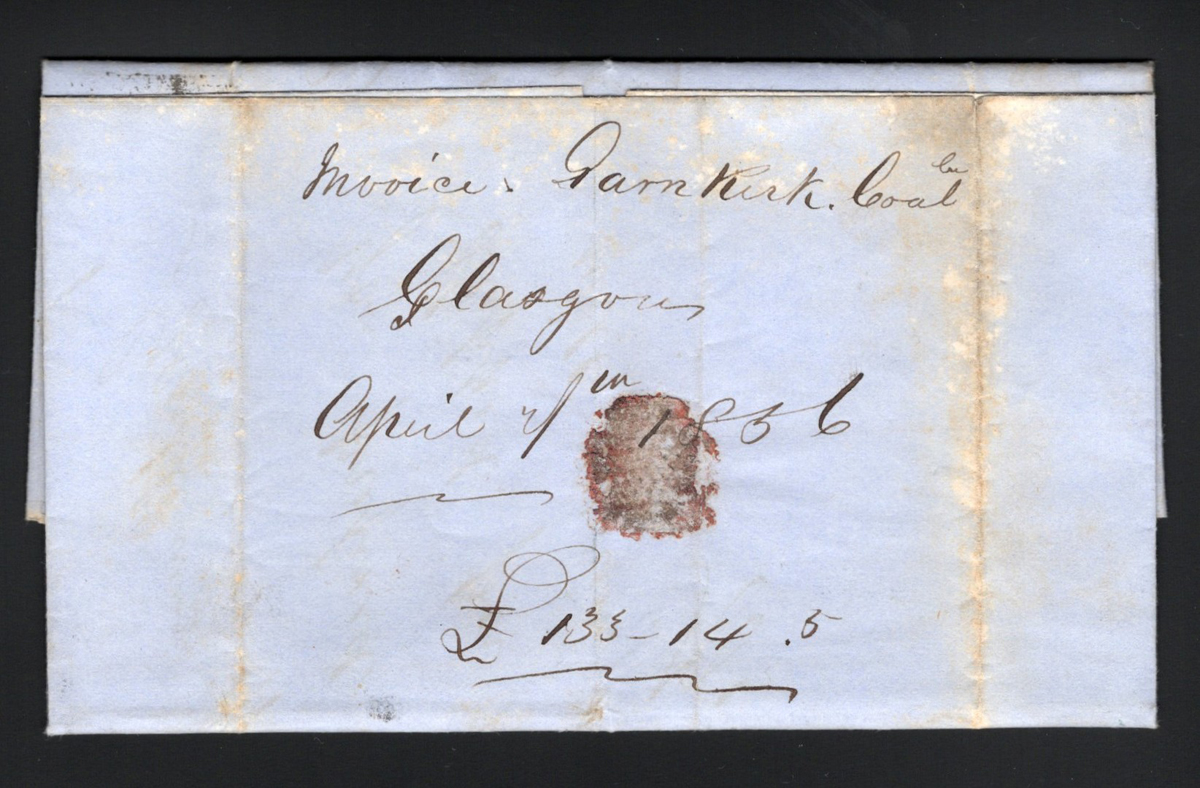 Invoice. Garnkirk. Coal Co
Glasgow
April 7/th 1856
£ 133-14.5